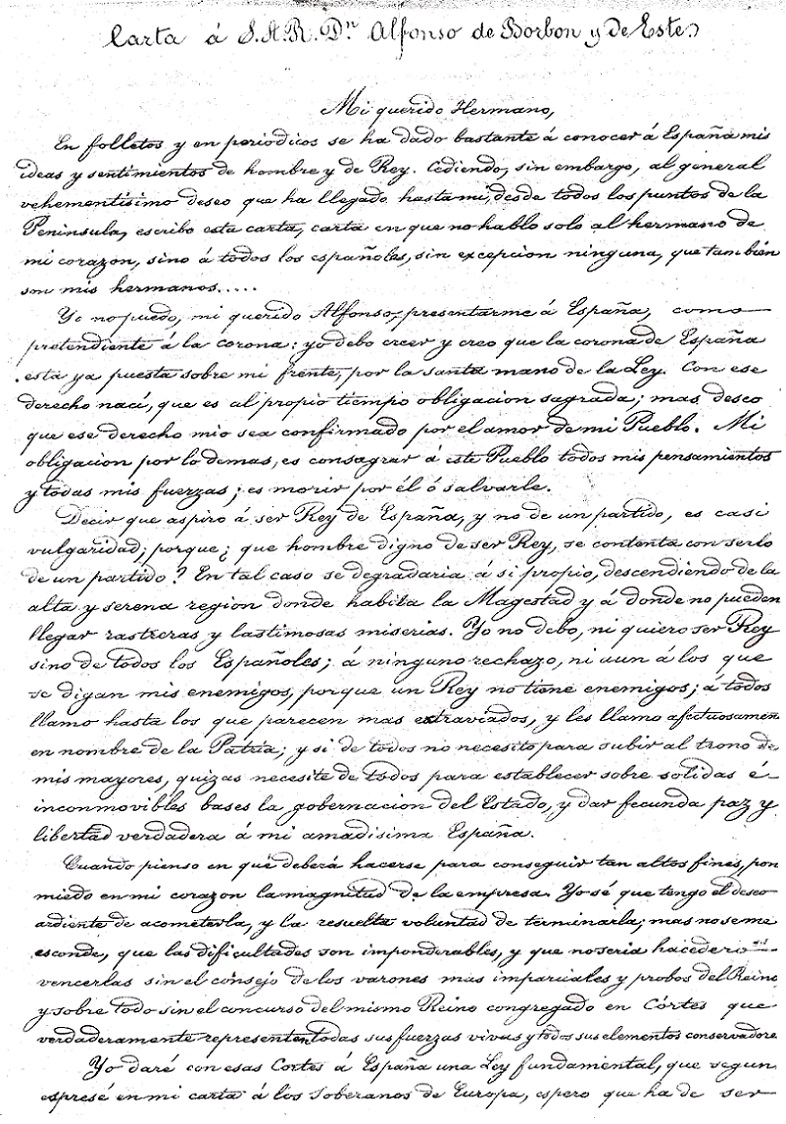 Carta á S.A.R. Dn Alfonso de Borbon y de Este.
Mi querido Hermano,
En folletos y en periodicos se ha dado bastante á conocer á España mis
ideas y sentimientos de hombre y de Rey. Cediendo, sin embargo, al general
vehementísimo deseo que ha llegado hasta mi, desde todos los puntos de la
Peninsula, escribo esta carta, carta en que no hablo solo al hermano de
mi corazon, sino á todos los españoles, sin excepcion ninguna, que tambien
son mis hermanos.....
Yo no puedo, mi querido Alfonso, presentarme á España, como
pretendiente á la corona: yo debo creer y creo que la corona de España
está ya puesta sobre mi frente, por la santa mano de la Ley. Con ese
derecho nací, que es al propio tiempo obligacion sagrada; mas deseo
que ese derecho mio sea confirmado por el amor de mi Pueblo. Mi
obligacion por lo demas, es consagrar á este Pueblo todos mis pensamientos
y todas mis fuerzas; es morir por él ó salvarle.
Decir que aspiro á ser Rey de España, y no de un partido, es casi
vulgaridad; porque ¿ que hombre digno de ser Rey, se contenta con serlo
de un partido? En tal caso se degradaria á si propio, descendiendo de la
alta y serena region donde habita la Magestad y á donde no pueden
llegar rastreras y lastimosas miserias. Yo no debo, ni quiero ser Rey
sino de todos los Españoles; á ninguno rechazo, ni aun á los que
se digan mis enemigos, porque un Rey no tiene enemigos; á todos
llamo hasta los que parecen mas extraviados, y les llamo afectuosamen
en nombre de la Patria; y si de todos no necesito para subir al trono de
mis mayores, quizas necesite de todos para establecer sobre solidas é
inconmovibles bases la gobernacion del Estado, y dar fecunda paz y
libertad verdadera á mi amadisima España.
Cuando pienso en que deberá hacerse para conseguir tan altos fines, pon
miedo en mi corazon la magnitud de la empresa. Yo sé que tengo el deseo
ardiente de acometerla, y la resuelta voluntad de terminarla; mas no se me
esconde, que las dificultades son imponderables, y que no seria hacedero
vencerlas sin el consejo de los varones mas imparciales y probos del Reino
y sobre todo sin el concurso del mismo Reino congregado en Córtes que
verdaderamente representen todas sus fuerzas vivas y todos sus elementos conservadore
Yo daré con esas Cortes á España una Ley fundamental, que segun
espresé en mi carta á los Soberanos de Europa, espero que ha de ser